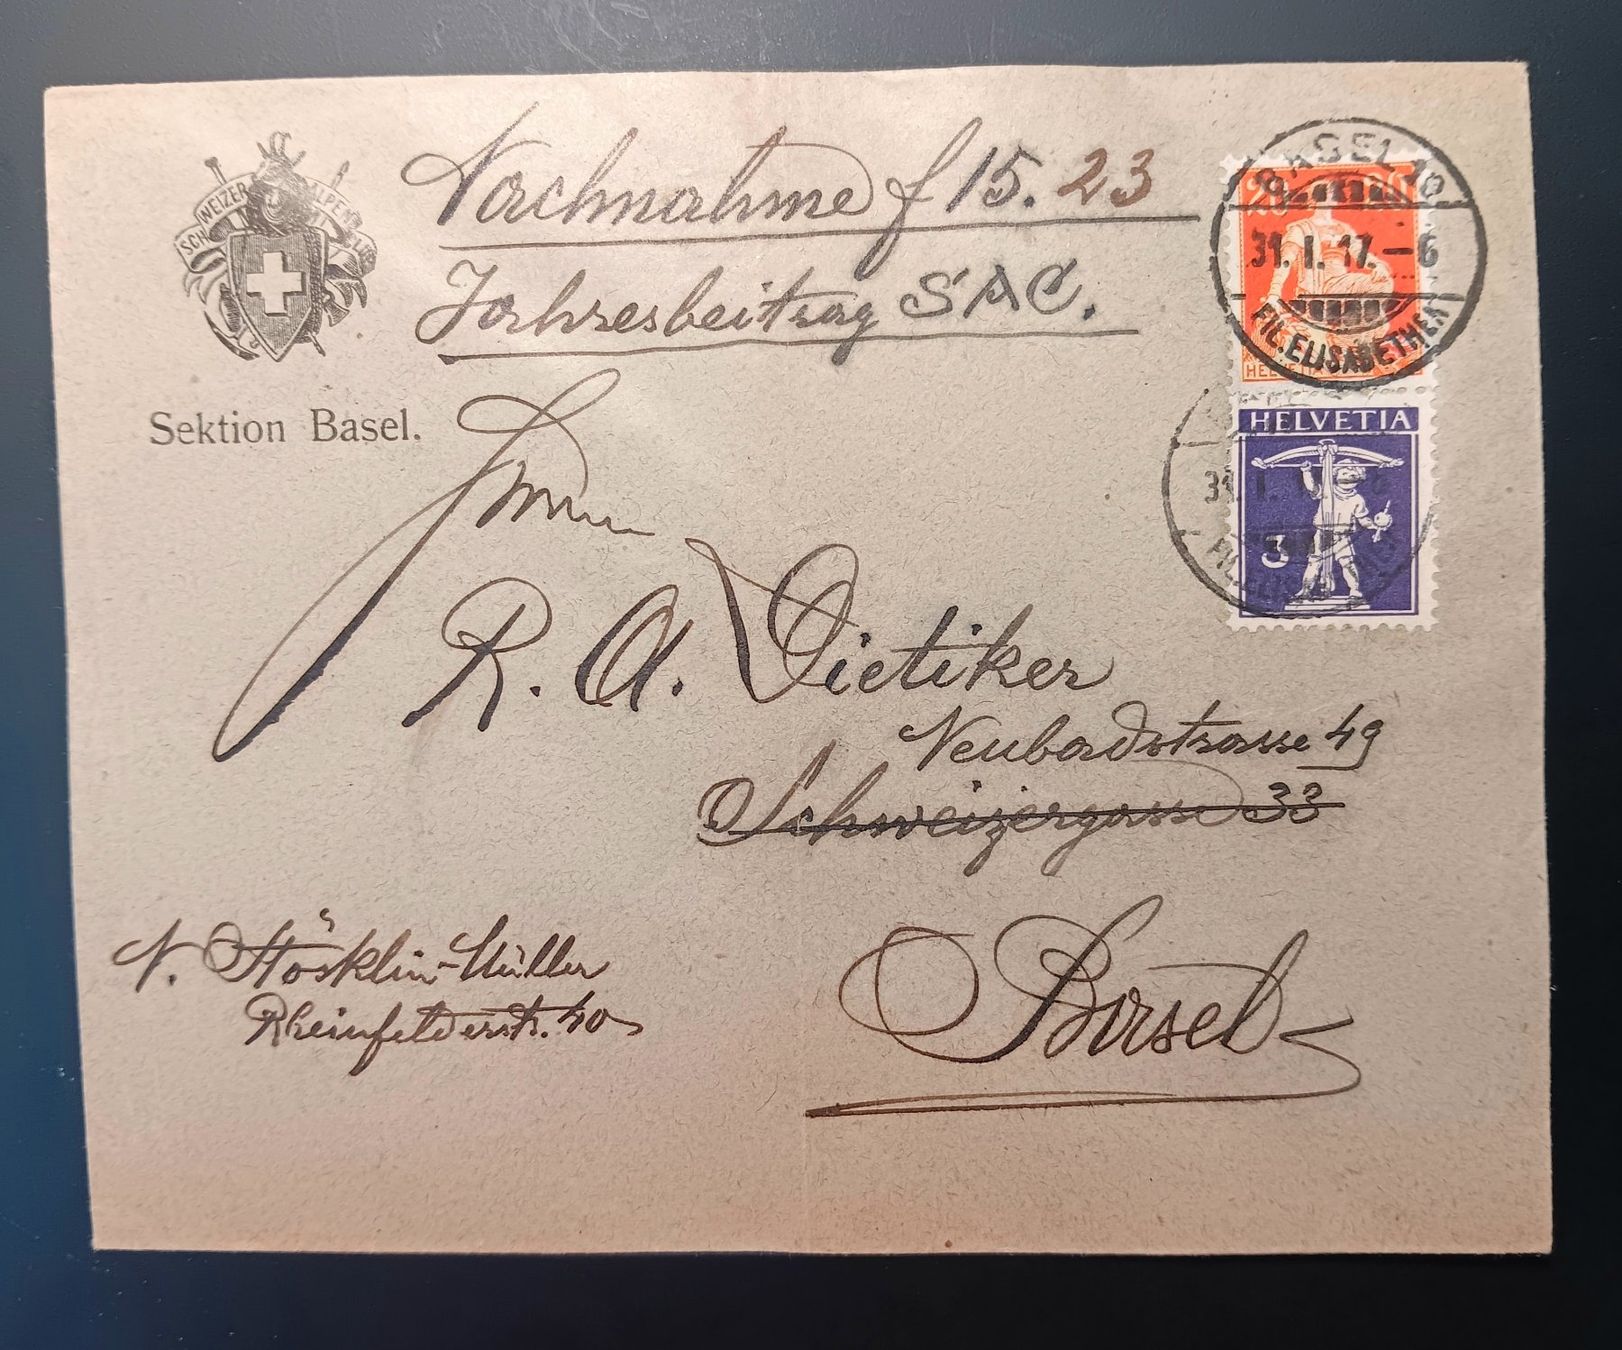 SCHWEIZER ALPEN
Sektion Basel.
Nachnahme f 15.23
Jahresbeitrag SAC.
Herrn
R. A. Dietiker
Neubadstrasse 49
Schweizergasse 33
Basel
N. Stöcklin-Müller
Rheinfelderstr. 40
BASEL 10
31. I. 17.–6
FIL. ELISABETHEN
20 20
HELVETIA
HELVETIA
3
31. I.